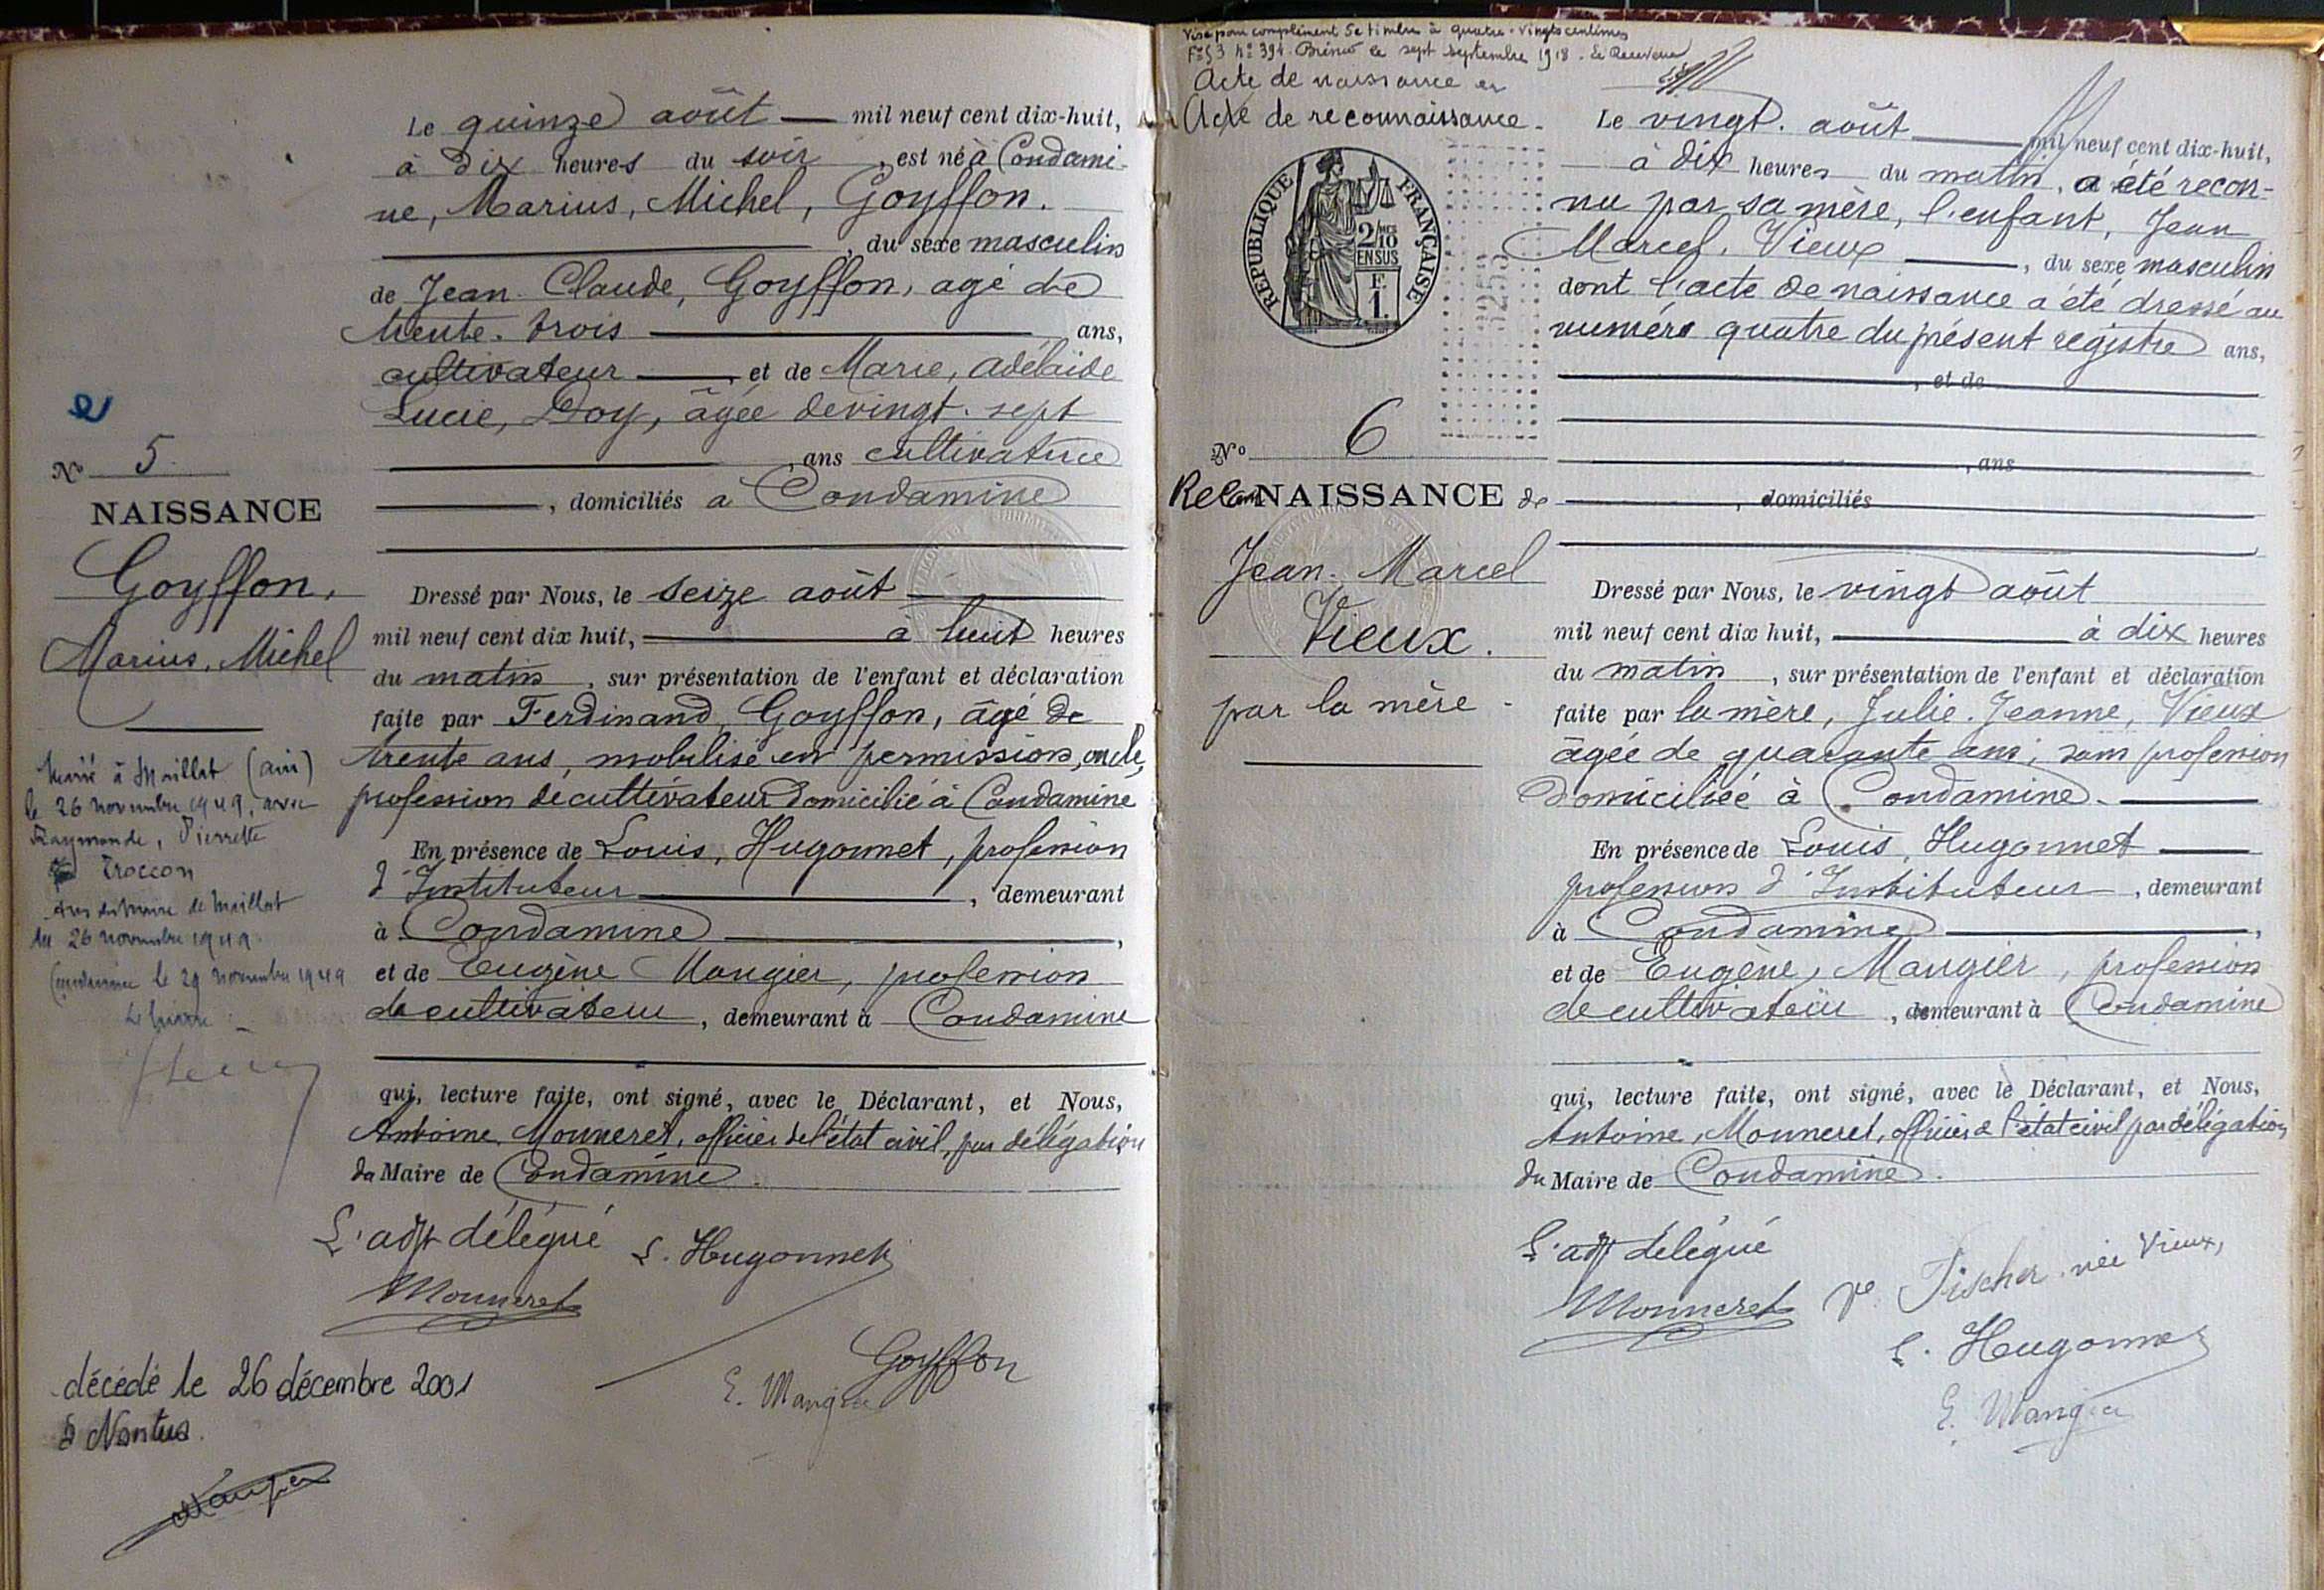 Le quinze août mil neuf cent dix-huit,
à dix heures du soir, est né à Condami-
ne, Marius, Michel, Goyffon.
, du sexe masculin
de Jean Claude, Goyffon, agé de
trente-trois ans,
cultivateur, et de Marie, Adélaïde
Lucie, Doy, âgée de vingt-sept
, ans cultivatrice
, domiciliés à Condamine
No 5
NAISSANCE
Goyffon,
Marius, Michel
Dressé par Nous, le seize août
mil neuf cent dix huit, à huit heures
du matin, sur présentation de l'enfant et déclaration
faite par Ferdinand, Goyffon, âgé de
trente ans, mobilisé en permission, oncle,
profession de cultivateur domicilié à Condamine
En présence de Louis, Hugonnet, profession
d'Instituteur, demeurant
à Condamine,
et de Eugène Mangier, profession
de cultivateur, demeurant à Condamine
qui, lecture faite, ont signé, avec le Déclarant, et Nous,
Antoine, Monneret, officier de l'état civil, par délégation
du Maire de Condamine.
L'adjt délégué
L. Hugonnet
Monneret
Goyffon
E. Mangier
Marié à Maillat (ain)
le 26 novembre 1949, avec
Raymonde, Pierrette
Troccon
avis du Maire de Maillat
du 26 novembre 1949
Condamine le 29 novembre 1949
Le Maire
décédé le 26 décembre 2001
à Nantua.
Visé pour complément de timbre à quatre-vingts centimes
Fo 53 No 394. Brénod le sept septembre 1918. Le Receveur
Acte de naissance en
Acte de reconnaissance.
RÉPUBLIQUE FRANÇAISE
2/10 EN SUS
F. 1.
No 6
ReconNAISSANCE de
Jean-Marcel
Vieux.
par la mère
Le vingt août mil neuf cent dix-huit,
à dix heures du matin, a été recon-
nu par sa mère, l'enfant, Jean
Marcel, Vieux, du sexe masculin
dont l'acte de naissance a été dressé au
numéro quatre du présent registre ans,
, et de
, ans
, domiciliés
Dressé par Nous, le vingt août
mil neuf cent dix huit, à dix heures
du matin, sur présentation de l'enfant et déclaration
faite par la mère, Julie-Jeanne, Vieux
âgée de quarante ans, sans profession
domiciliée à Condamine.
En présence de Louis, Hugonnet
profession d'Instituteur, demeurant
à Condamine,
et de Eugène, Mangier, profession
de cultivateur, demeurant à Condamine
qui, lecture faite, ont signé, avec le Déclarant, et Nous,
Antoine, Monneret, officier de l'état civil par délégation
du Maire de Condamine.
L'adjt délégué
Monneret
Ve Fischer née Vieux,
L. Hugonnet
E. Mangier